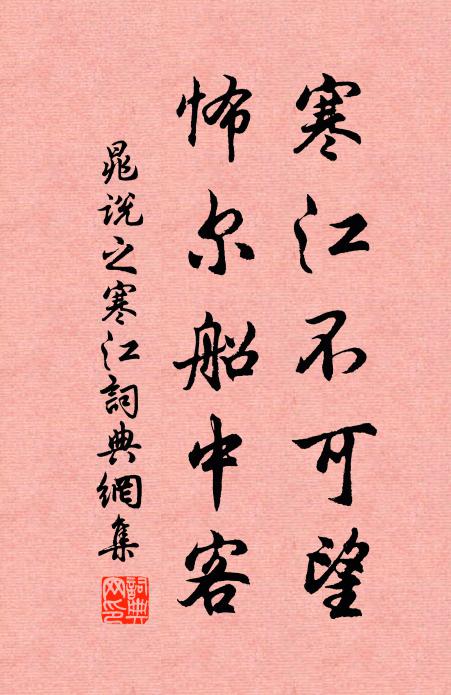 寒江不可望
怖尔船中客
晁说之寒江詞典網集
詞典网印